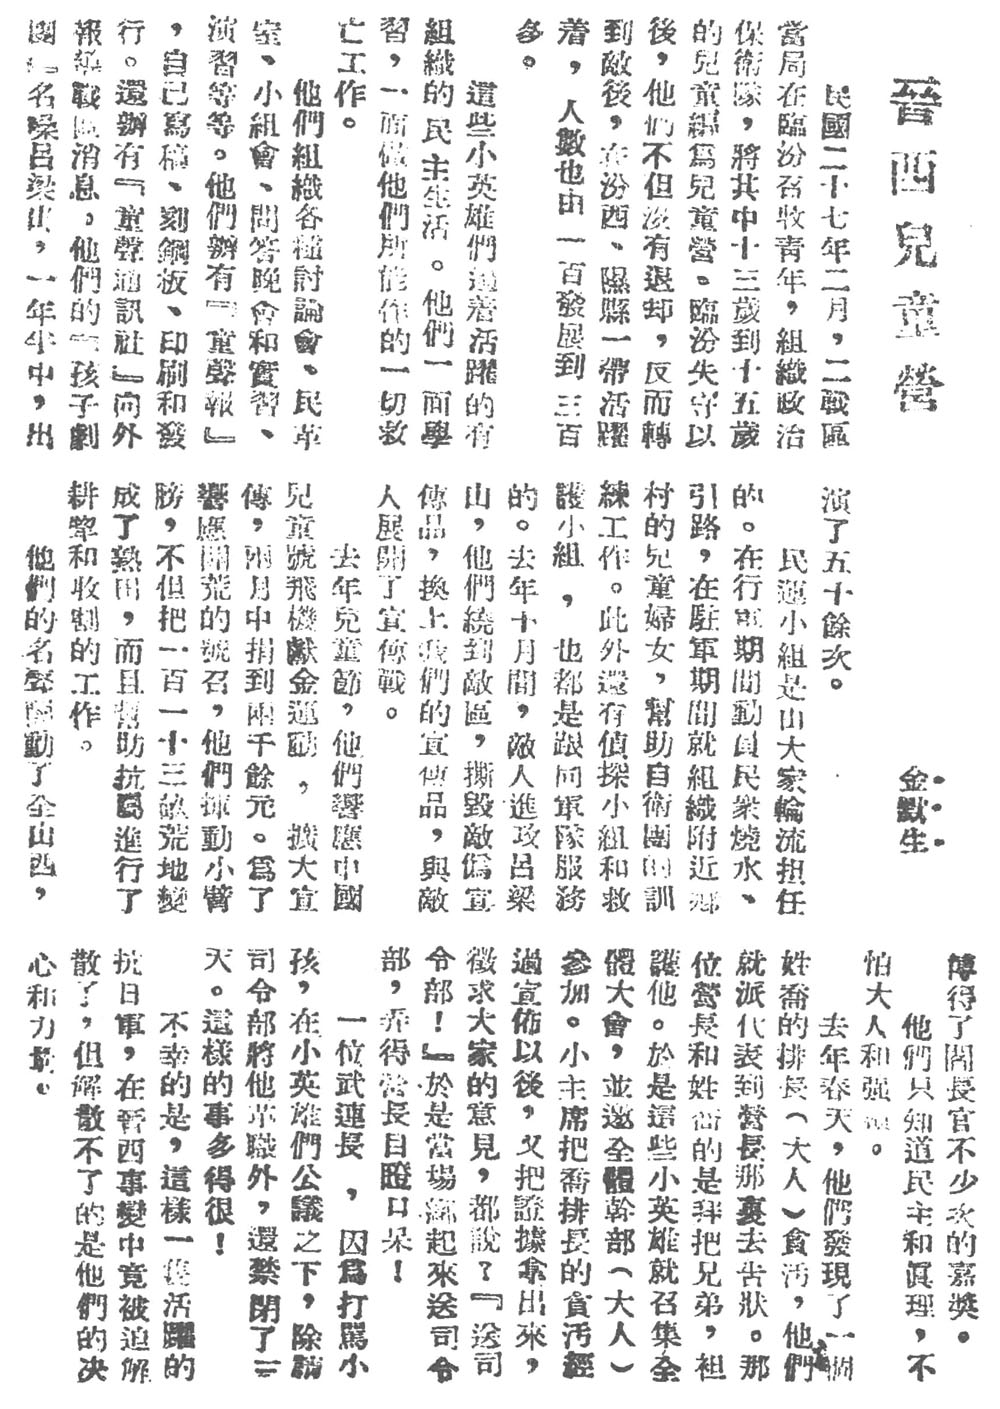 晉西兒童營
金默生
民國二十七年二月，二戰區
當局在臨汾召收青年，組織政治
保衛隊，將其中十三歲到十五歲
的兒童編爲兒童營。臨汾失守以
後，他們不但沒有退却，反而轉
到敵後，在汾西、隰縣一帶活躍
着，人數也由一百發展到三百
多。
這些小英雄們過着活躍的有
組織的民主生活。他們一面學
習，一面做他們所能作的一切救
亡工作。
他們組織各種討論會、民革
室、小組會、問答晚會和實習、
演習等等。他們辦有『童聲報』
，自己寫稿、刻鋼板、印刷和發
行。還辦有『童聲通訊社』向外
報導戰區消息。他們的『孩子劇
團』名噪呂梁山，一年半中，出
演了五十餘次。
民運小組是由大家輪流担任
的。在行軍期間動員民衆燒水、
引路，在駐軍期間就組織附近鄉
村的兒童婦女，幫助自衛團的訓
練工作。此外還有偵探小組和救
護小組，也都是跟同軍隊服務
的。去年十月間，敵人進攻呂梁
山，他們繞到敵區，撕毀敵僞宣
傳品，換上我們的宣傳品，與敵
人展開了宣傳戰。
去年兒童節，他們響應中國
兒童號飛機獻金運動，擴大宣
傳，兩月中捐到兩千餘元。爲了
響應開荒的號召，他們揮動小臂
膀，不但把一百一十三畝荒地變
成了熟田，而且幫助抗屬進行了
耕犂和收割的工作。
他們的名聲震動了全山西，
博得了閻長官不少次的嘉獎。
他們只知道民主和眞理，不
怕大人和强。
去年春天，他們發現了一個
姓喬的排長（大人）貪污，他們
就派代表到營長那裏去告狀。那
位營長和姓喬的是拜把兄弟，袒
護他。於是這些小英雄就召集全
體大會，並邀全體幹部（大人）
參加。小主席把喬排長的貪汚經
過宣佈以後，又把證據拿出來，
徵求大家的意見，都說？『送司
令部！』於是當場綁起來送司令
部，弄得營長目瞪口呆！
一位武連長，因爲打罵小
孩，在小英雄們公議之下，除請
司令部將他革職外，還禁閉了三
天。這樣的事多得很！
不幸的是，這樣一隻活躍的
抗日軍，在晉西事變中竟被迫解
散了，但解散不了的是他們的决
心和力量。